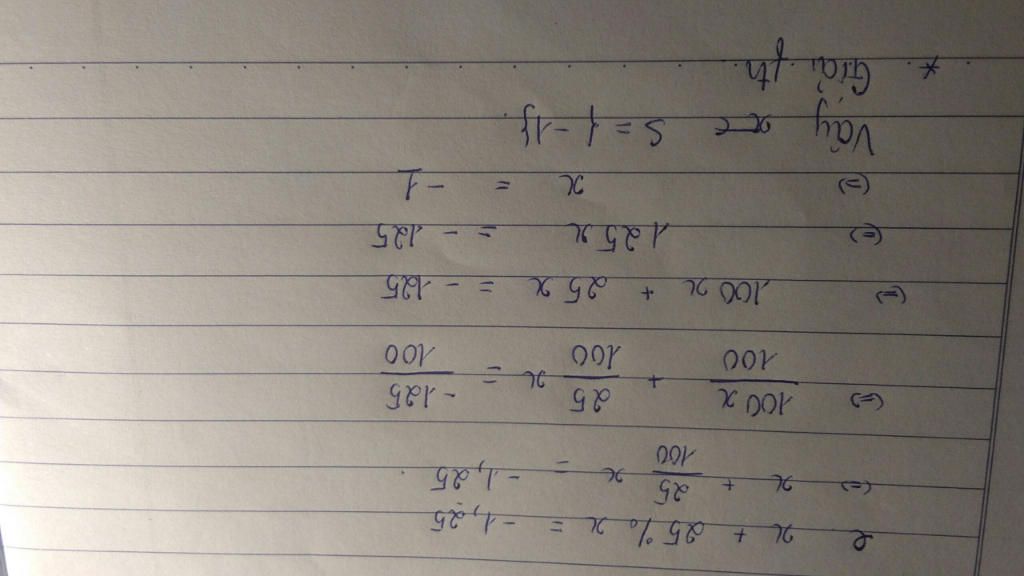 e x + 25% x = -1,25
(=) x + 25/100 x = -1,25.
(=) 100x/100 + 25/100 x = -125/100
(=) 100x + 25x = -125
(=) 125x = -125
(=) x = -1
Vậy S = {-1}.
* Giải pth